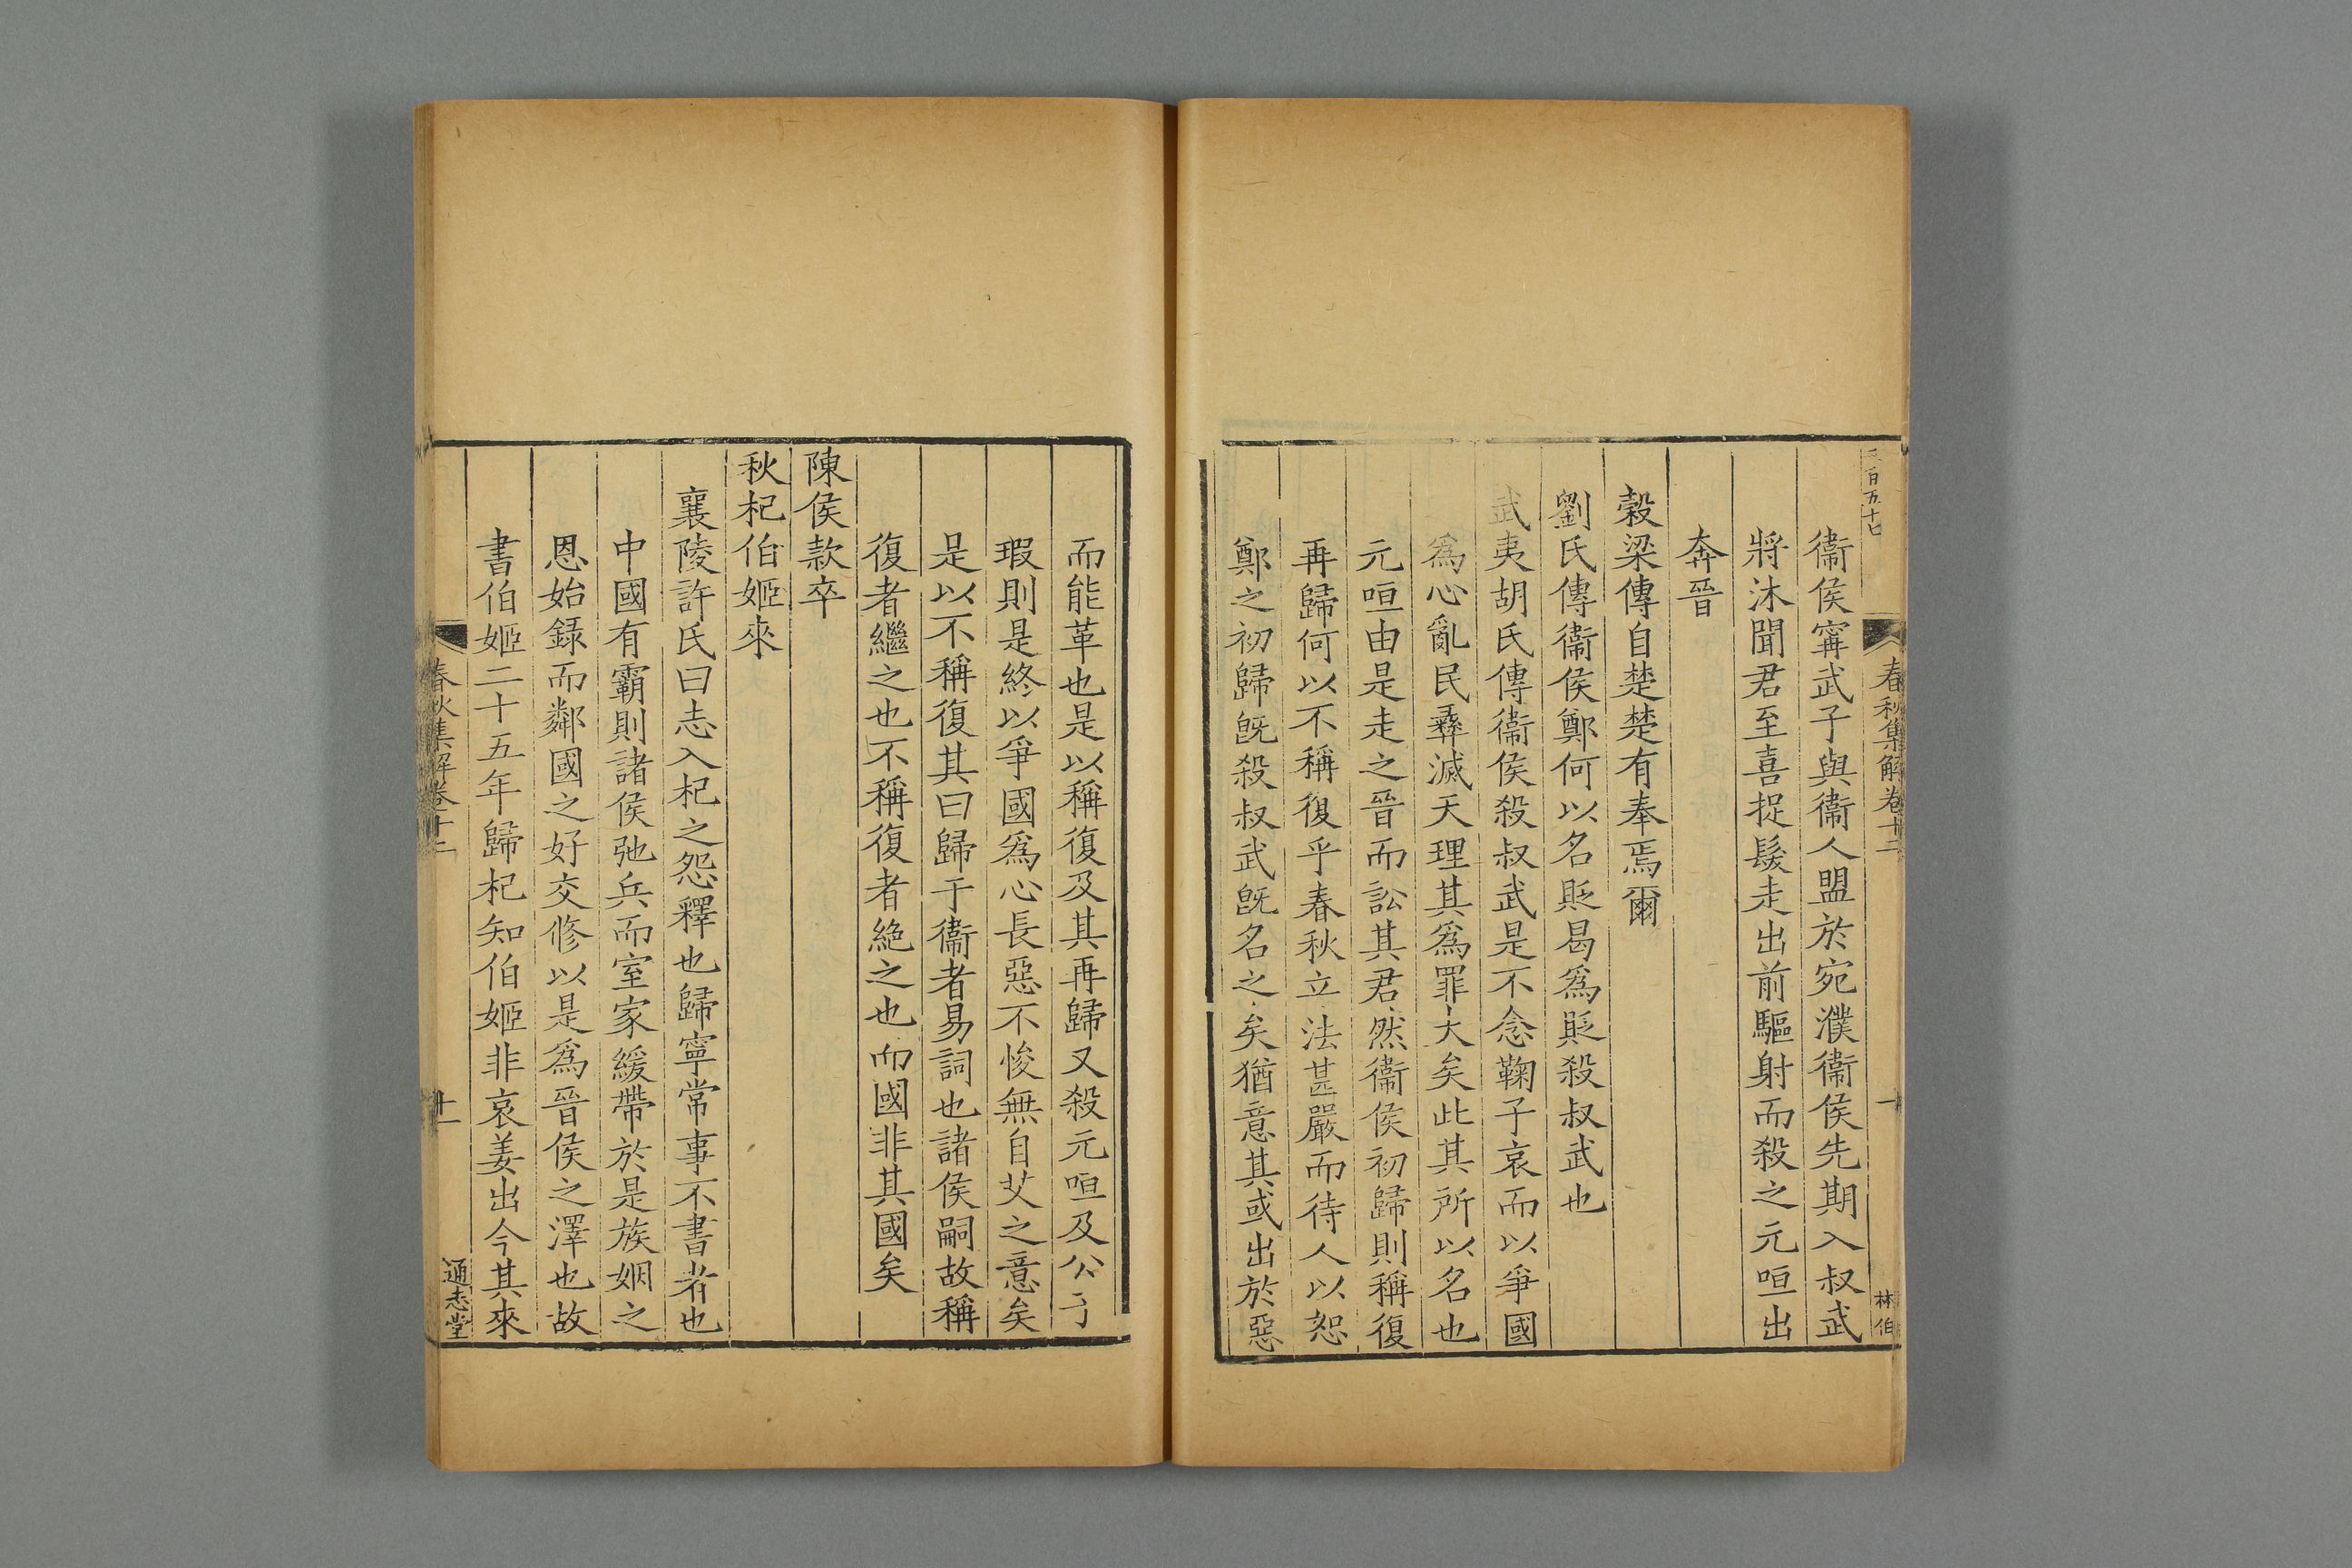 三百五十七
春秋集解卷十二
十
林伯
衞侯甯武子與衞人盟於宛濮衞侯先期入叔武
將沐聞君至喜捉髮走出前驅射而殺之元咺出
奔晉
穀梁傳自楚楚有奉焉爾
劉氏傳衞侯鄭何以名貶曷爲貶殺叔武也
武夷胡氏傳衞侯殺叔武是不念鞠子哀而以爭國
爲心亂民彝滅天理其爲罪大矣此其所以名也
元咺由是走之晉而訟其君然衞侯初歸則稱復
再歸何以不稱復乎春秋立法甚嚴而待人以恕
鄭之初歸旣殺叔武旣名之矣猶意其或出於惡
而能革也是以稱復及其再歸又殺元咺及公子
瑕則是終以爭國爲心長惡不悛無自艾之意矣
是以不稱復其曰歸于衞者易詞也諸侯嗣故稱
復者繼之也不稱復者絶之也而國非其國矣
陳侯款卒
秋杞伯姬來
襄陵許氏曰志入杞之怨釋也歸寧常事不書者也
中國有霸則諸侯弛兵而室家緩帶於是族姻之
恩始録而鄰國之好交修以是爲晉侯之澤也故
書伯姬二十五年歸杞知伯姬非哀姜出今其來
春秋集解卷十二
十一
通志堂